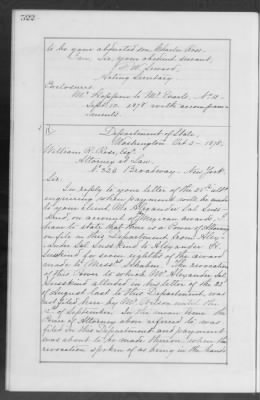 522
to be your abducted son Charlie Ross.
I am, Sir, your obedient servant,
F. W. Seward,
Acting Secretary.
Enclosure:
Mr. to Mr. Evarts, No. 11
Sept. 10. 1878 with accompani-
ments.
Department of State,
Washington Oct. 2 - 1878.
William R. Rose, Esq.
Attorney at Law.
No. 320 Broadway - New York.
Sir:
In reply to your letter of the 28th
enquiring when payment will be made
to your client Mr. Alexander Sal. Suss-
kind, on account of Mexican awards, I
have to state that there is a Power of Attorney
on file in this Department from Alex-
ander Sal Susskind to Alexander
Susskind for seven eighths of the award
made to Messrs. The revocation
of this Power to which Mr. Alexander Sal.
Susskind alluded in his letter of the 22
of August last to this Department, was
not filed here by Mr. until the
of September. In the mean time the
Power of Attorney above referred to was
filed in this Department and payment
was about to be made thereon, when the
revocation spoken of as being in the hands